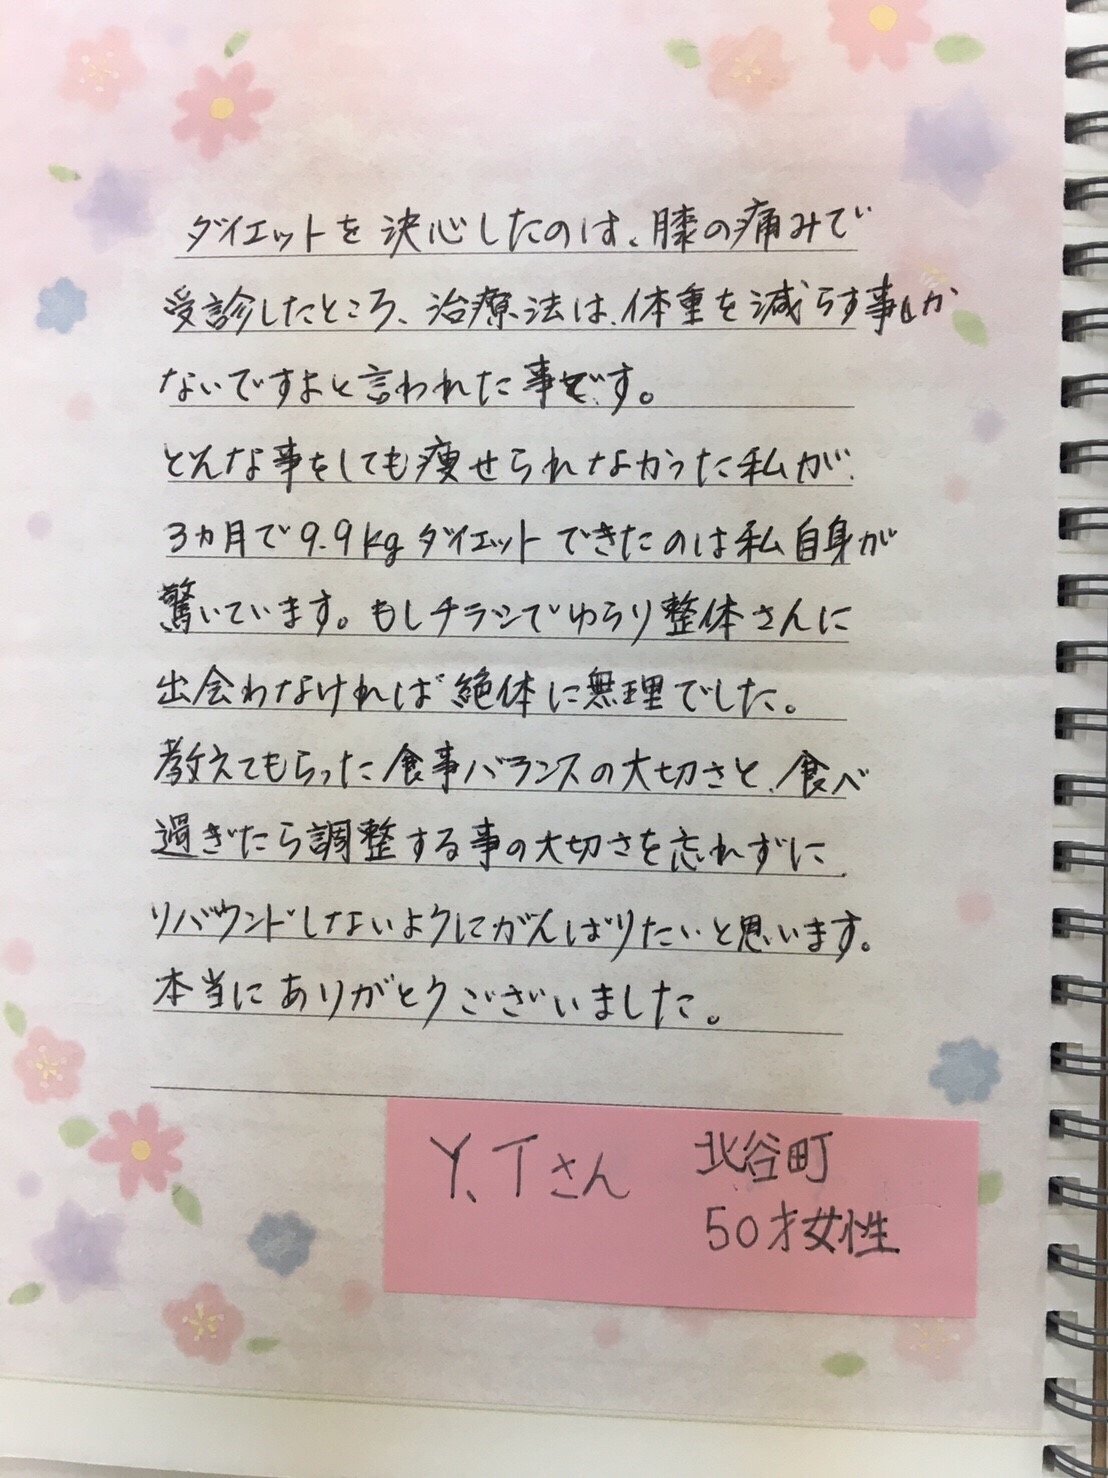 ダイエットを決心したのは、膝の痛みで
受診したところ、治療法は、体重を減らす事しか
ないですよと言われた事です。
どんな事をしても痩せられなかった私が、
3ヵ月で9.9kgダイエットできたのは私自身が
驚いています。もしチラシでゆらり整体さんに
出会わなければ絶体に無理でした。
教えてもらった食事バランスの大切さと、食べ
過ぎたら調整する事の大切さを忘れずに、
リバウンドしないようにがんばりたいと思います。
本当にありがとうございました。
Y.Tさん 北谷町
50才女性